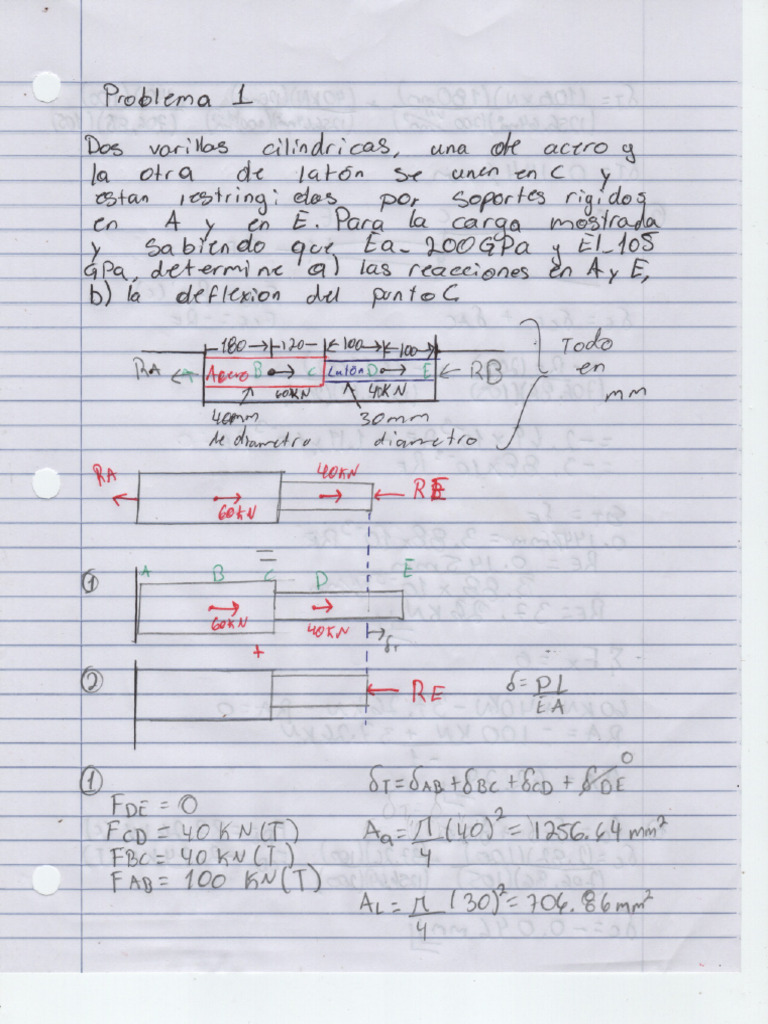 Problema 1
Dos varillas cilindricas, una de acero y
la otra de latón se unen en C y
estan restringidas por soportes rigidos
en A y en E. Para la carga mostrada
y sabiendo que Ea_ 200GPa y El_105
GPa, determine a) las reacciones en A y E,
b) la deflexion del punto C.
180 120 100 100
RA A Acero B C Latón D E RB
60KN 40KN
40mm de diametro
30mm diametro
Todo en mm
RA 60KN 40KN RE
=
① A B C D E
60KN 40KN δT
+
② RE
δ = PL/EA
①
δT = δAB + δBC + δCD + δDE 0
FDE = 0
FCD = 40 KN(T)
FBC = 40 KN(T)
FAB = 100 KN(T)
Aa = π/4 (40)² = 1256.64 mm²
AL = π/4 (30)² = 706.86 mm²